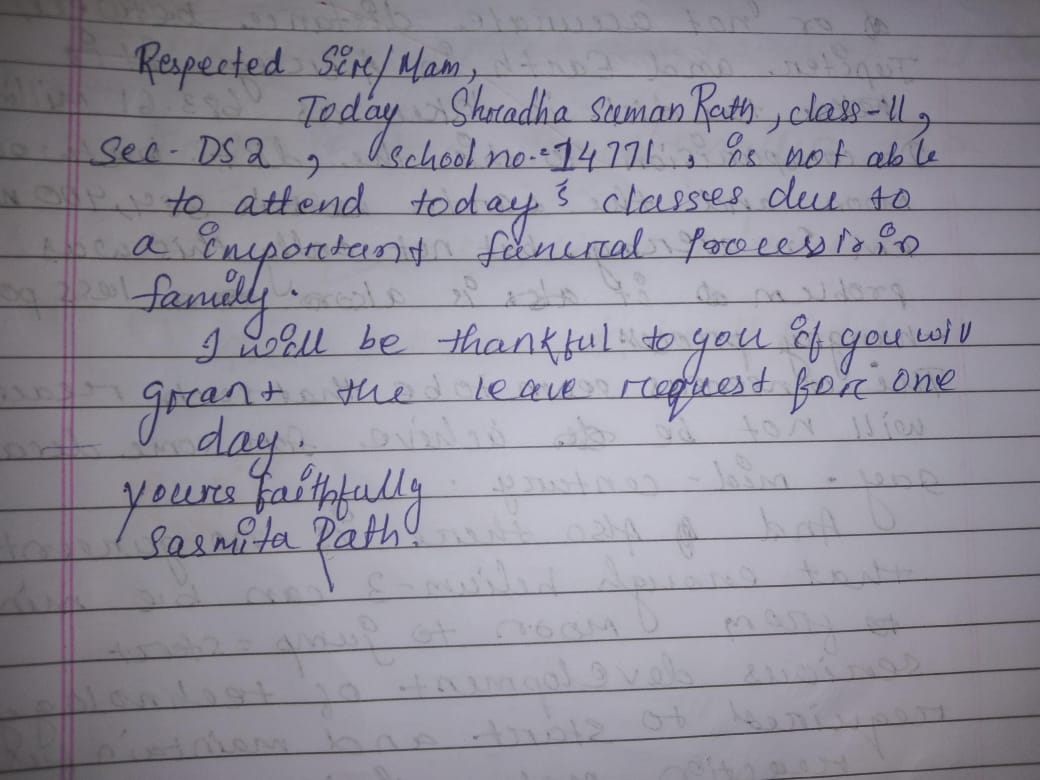 Respected Sir/Mam,
Today Shradha Suman Rath, class-11,
Sec- DS2, school no.-14771, is not able
to attend today's classes due to
a important funeral process in
family.
I will be thankful to you if you will
grant the leave request for one
day.
yours faithfully
Sasmita Path.